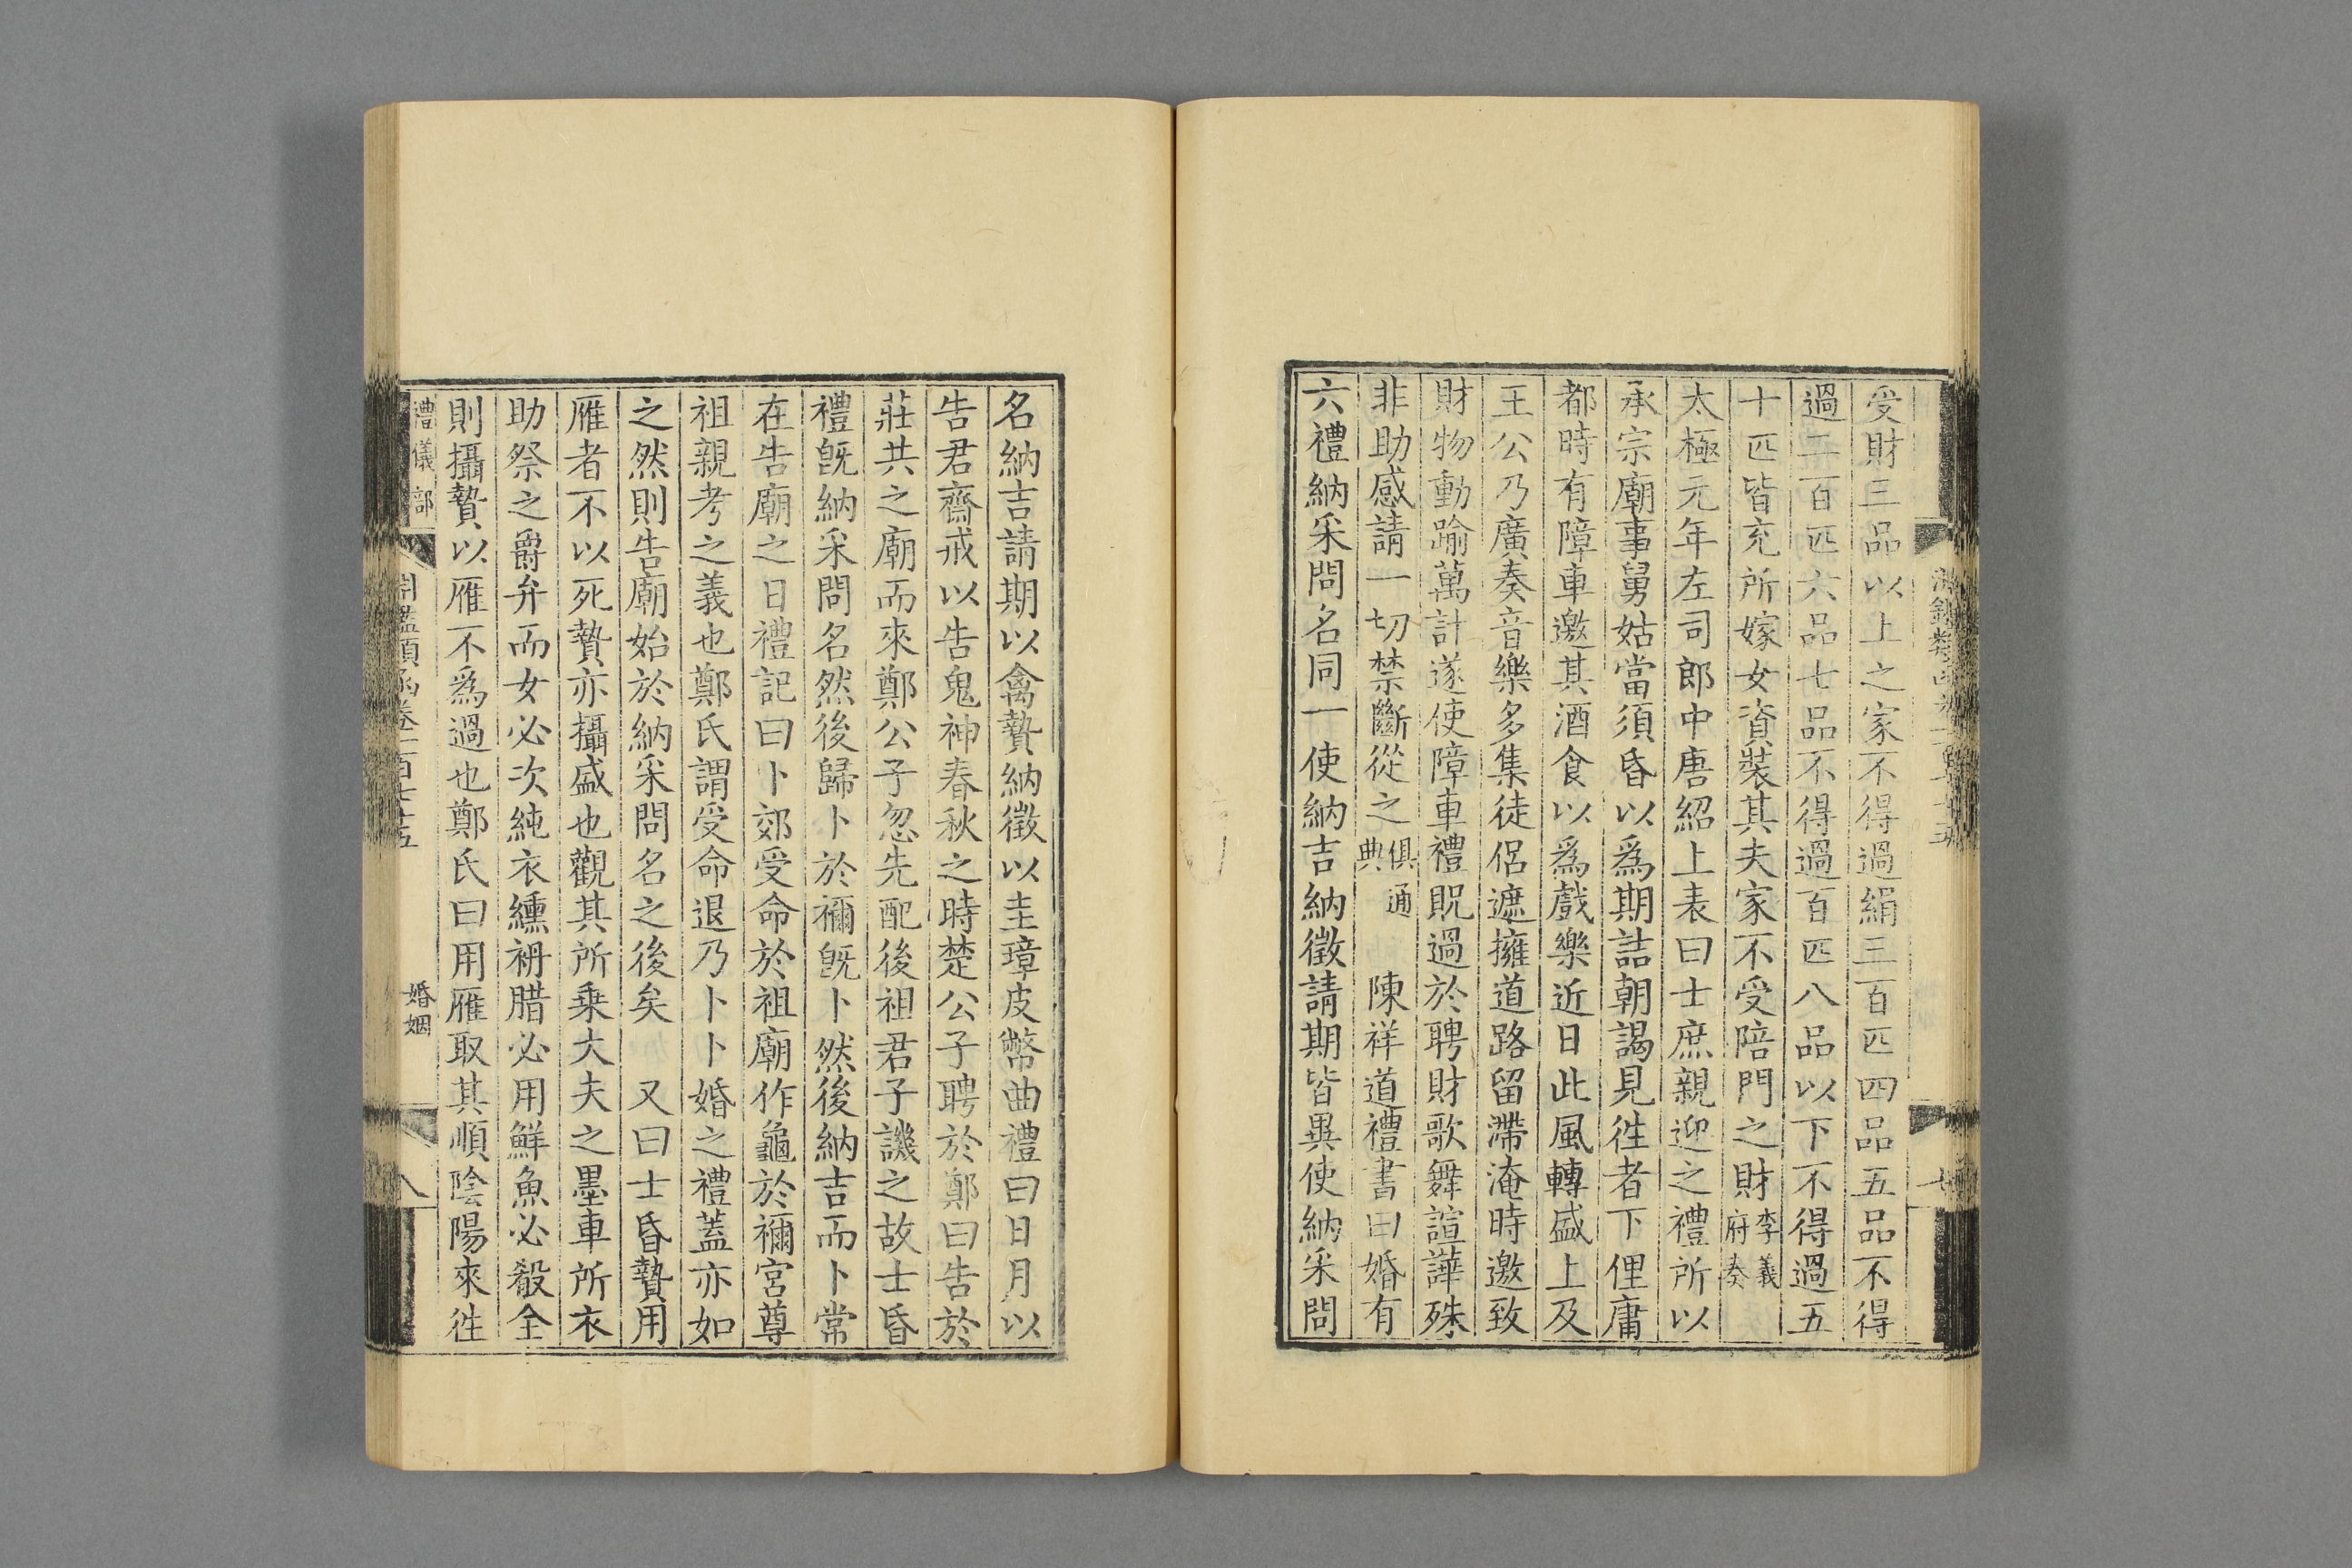 受財三品以上之家不得過絹三百匹四品五品不得
過二百匹六品七品不得過百匹八品以下不得過五
十匹皆充所嫁女資裝其夫家不受陪門之財李義府奏
太極元年左司郎中唐紹上表曰士庶親迎之禮所以
承宗廟事舅姑當須昏以為期詰朝謁見徃者下俚庸
都時有障車邀其酒食以為戲樂近日此風轉盛上及
王公乃廣奏音樂多集徒侶遮擁道路留滯淹時邀致
財物動踰萬計遂使障車禮貺過於聘財歌舞諠譁殊
非助感請一切禁斷從之俱通典 陳祥道禮書曰婚有
六禮納采問名同一使納吉納徵請期皆異使納采問
七
名納吉請期以禽贄納徵以圭璋皮幣曲禮曰日月以
告君齋戒以告鬼神春秋之時楚公子聘於鄭曰告於
莊共之廟而來鄭公子忽先配後祖君子譏之故士昏
禮旣納采問名然後歸卜於禰旣卜然後納吉而卜常
在告廟之日禮記曰卜郊受命於祖廟作龜於禰宮尊
祖親考之義也鄭氏謂受命退乃卜卜婚之禮蓋亦如
之然則告廟始於納采問名之後矣 又曰士昏贄用
雁者不以死贄亦攝盛也觀其所乗大夫之墨車所衣
助祭之爵弁而女必次純衣纁袡腊必用鮮魚必殽全
則攝贄以雁不爲過也鄭氏曰用雁取其順陰陽來徃
禮儀部
淵鑑類函卷一百七十五
婚姻
八